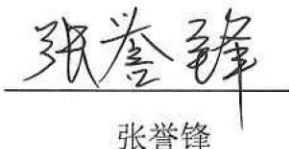 张誉锋
张誉锋